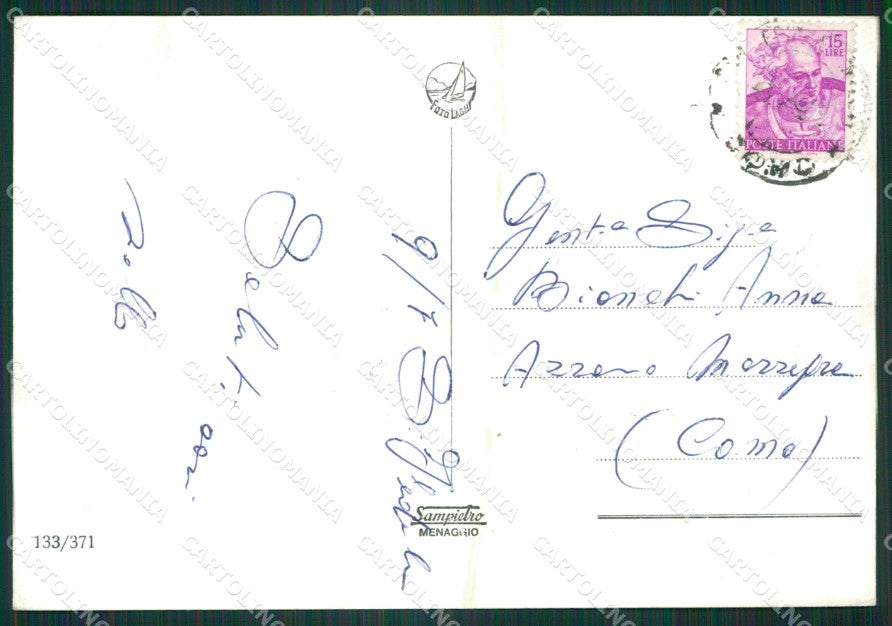 9/7
Saluti cari
FOTO LAGHI
Sampietro
MENAGGIO
133/371
15
LIRE
POSTE ITALIANE
Gent.a Sig.a
Bianchi Anna
Azzano Mezzegra
(Como)
CARTOLINOMANIA